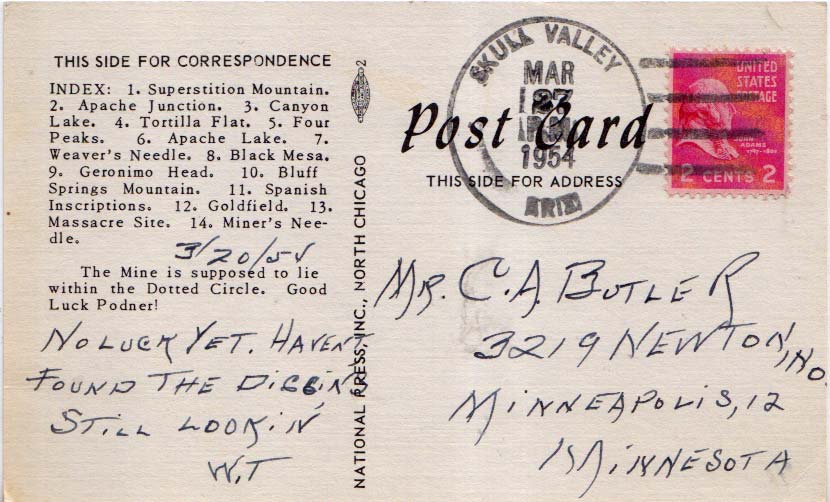 THIS SIDE FOR CORRESPONDENCE
INDEX: 1. Superstition Mountain.
2. Apache Junction. 3. Canyon
Lake. 4. Tortilla Flat. 5. Four
Peaks. 6. Apache Lake. 7.
Weaver's Needle. 8. Black Mesa.
9. Geronimo Head. 10. Bluff
Springs Mountain. 11. Spanish
Inscriptions. 12. Goldfield. 13.
Massacre Site. 14. Miner's Nee-
dle.
3/20/54
The Mine is supposed to lie
within the Dotted Circle. Good
Luck Podner!
NO LUCK YET. HAVEN'T
FOUND THE DIGGINS
STILL LOOKIN
W.T
2
NATIONAL PRESS, INC., NORTH CHICAGO
Post Card
THIS SIDE FOR ADDRESS
SKULL VALLEY
MAR
27
PM
1954
ARIZ
UNITED
STATES
POSTAGE
JOHN
ADAMS
1797-1801
2 CENTS 2
MR. C.A. BUTLER
3219 NEWTON,
NO.
MINNEAPOLIS, 12
MINNESOTA